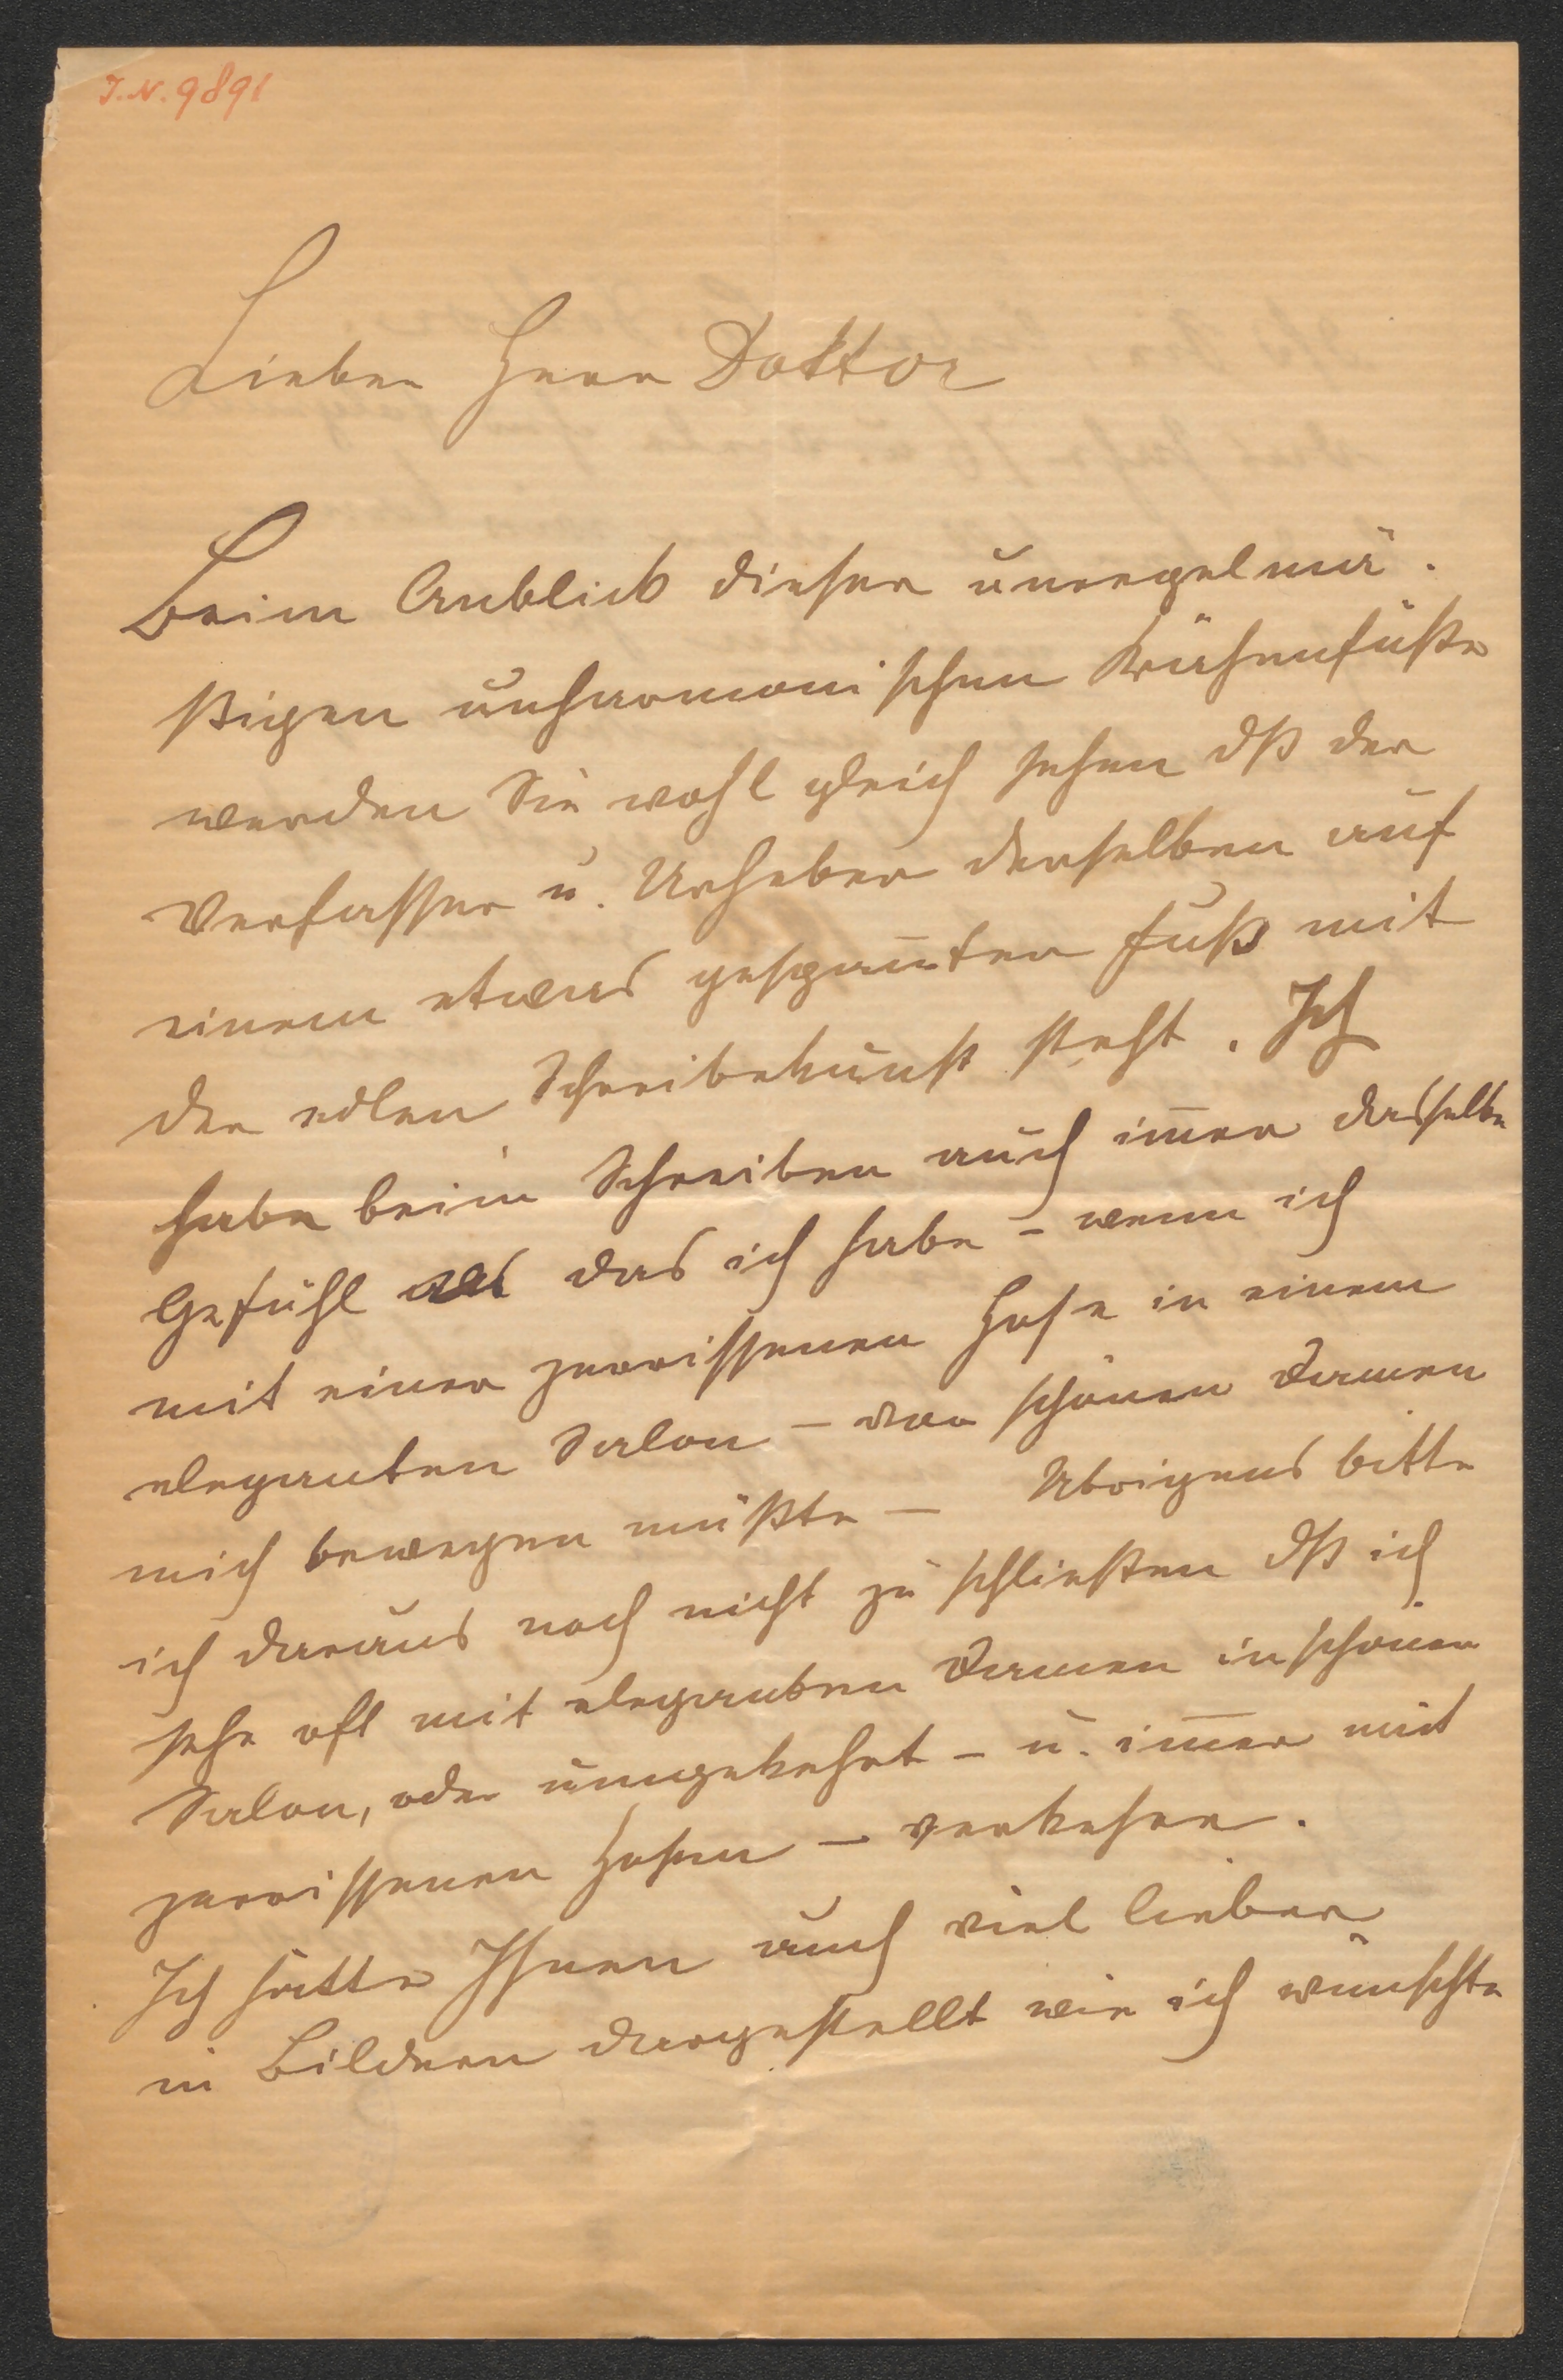 I.N. 9891
Lieber Herr Doktor
Beim Anblick dieser unregelmä-
ßigen unharmonischen Krähenfüße
werden Sie wohl gleich sehen dß der
Verfasser u. Urheber derselben auf
einem etwas gespan̅ten Fuß mit
der edlen Schreibekunst steht. Ich
habe beim Schreiben auch im̅er dasselbe
Gefühl als das ich habe – wenn ich
mit einer zerrissenen Hose in einem
eleganten Salon – vor schönen Damen
mich bewegen müßte – Übrigens bitte
ich daraus noch nicht zu schließen dß ich
sehr oft mit eleganten Damen in schönen
Salon, oder umgekehrt – u. im̅er mit
zerrissenen Hosen – verkehre.
Ich hätte Ihnen auch viel lieber
in Bildern dargestellt wie ich wünschte